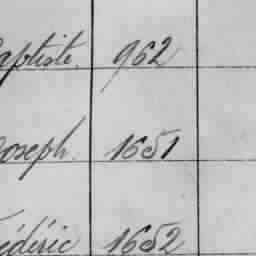 aptiste. 962
Joseph. 1651
édéric 1652